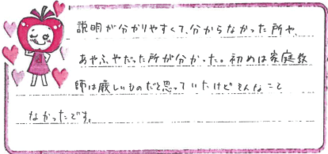 説明が分かりやすくて、分からなかった所や、
あやふやだった所が分かった。初めは家庭教
師は厳しいものだと思っていたけどそんなこと
なかったです。